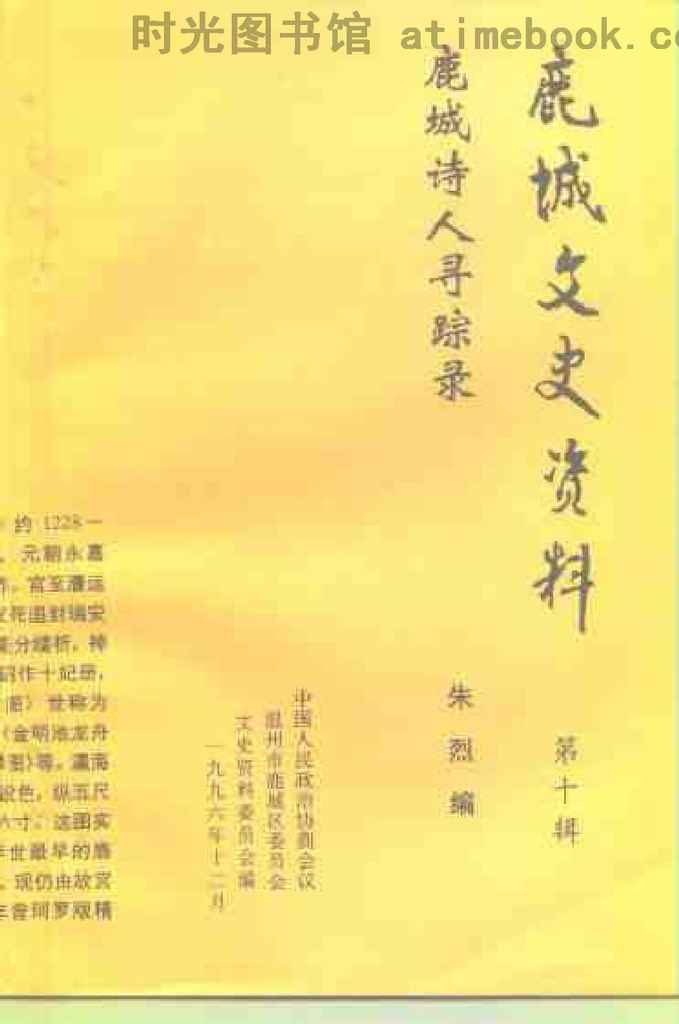 时光图书馆 atimebook.co
鹿城文史资料
第十辑
鹿城诗人寻踪录
朱烈编
中国人民政治协商会议
温州市鹿城区委员会
文史资料委员会编
一九九六年十二月
约1228一
元朝永嘉
官至漕运
死追封瑞安
作十妃册,
世称为
《金明池龙舟
图》等。
设色,纵五尺
六寸。这图实
世最早的
现仍由故宫
珂罗版精